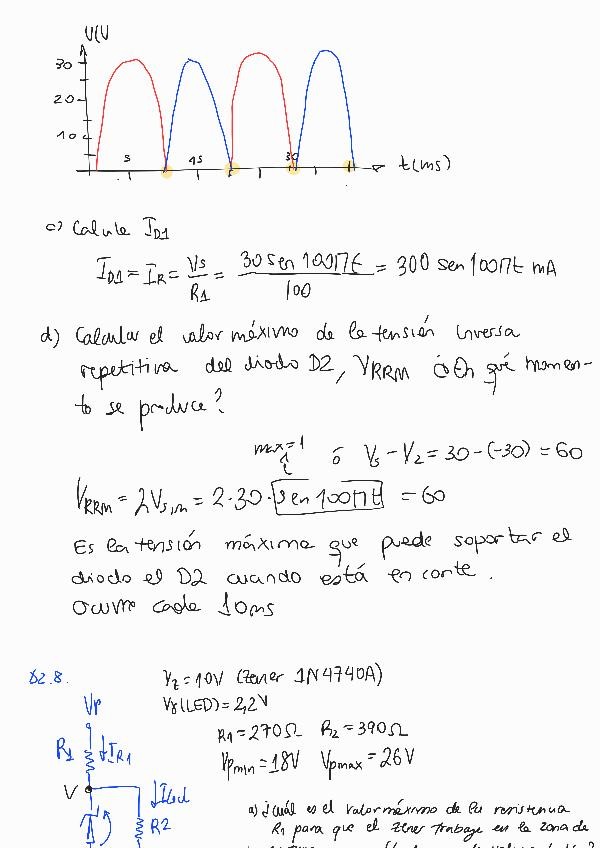 V(V
30
20
10
5
15
30
t(ms)
c) Calcule ID1
ID1 = IR = Vs/R1 = 30 sen 100πt/100 = 300 sen 100πt mA
d) Calcular el valor máximo de la tensión inversa
repetitiva del diodo D2, VRRM ¿En qué momen-
to se produce?
max=1
ó Vs - V2 = 30 - (-30) = 60
VRRM = 2Vs,m = 2·30·sen 100πt = 60
Es la tensión máxima que puede soportar el
diodo el D2 cuando está en corte.
Ocurre cada 10ms
D2.8.
Vz = 10V (Zener 1N4740A)
Vγ(LED) = 2,2V
R1 = 270Ω R2 = 390Ω
Vpmin = 18V Vpmax = 26V
Vp
R1 ↓IR1
V ↓ILed
R2
a) ¿Cuál es el valor máximo de la resistencia
R1 para que el zener trabaje en la zona de